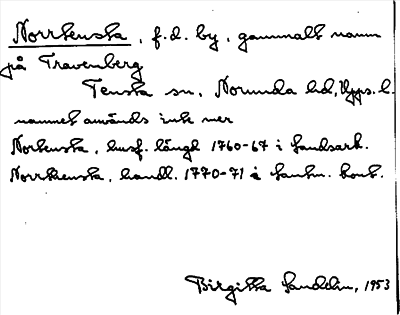 Norrtenska, f.d. by, gammalt namn
på Fravenberg
Tenska sn, Norunda hd, Upps. l.
namnet används inte mer
Nortenska, husf. längd 1760-67 i Landsark.
Norrtenska, handl. 1770-71 i Lantm. kont.
Birgitta Landelin, 1953